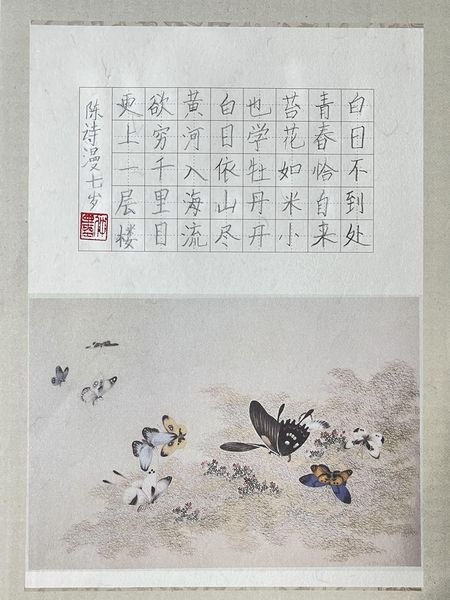 白日不到处
青春恰自来
苔花如米小
也学牡丹丹
白日依山尽
黄河入海流
欲穷千里目
更上一层楼
陈诗漫七岁